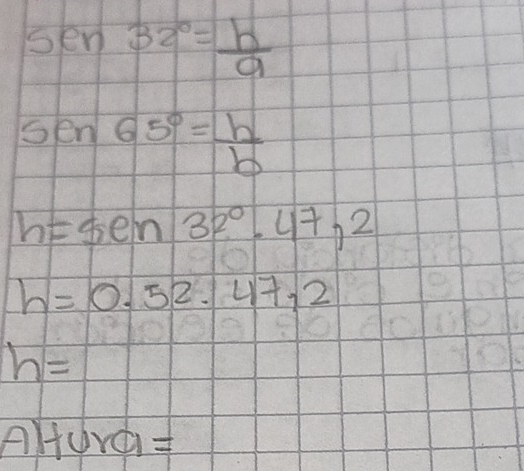 sen 32° = h/a
sen 65° = h/b
h = sen 32° . 47,2
h = 0.52 . 47,2
h =
Altura =